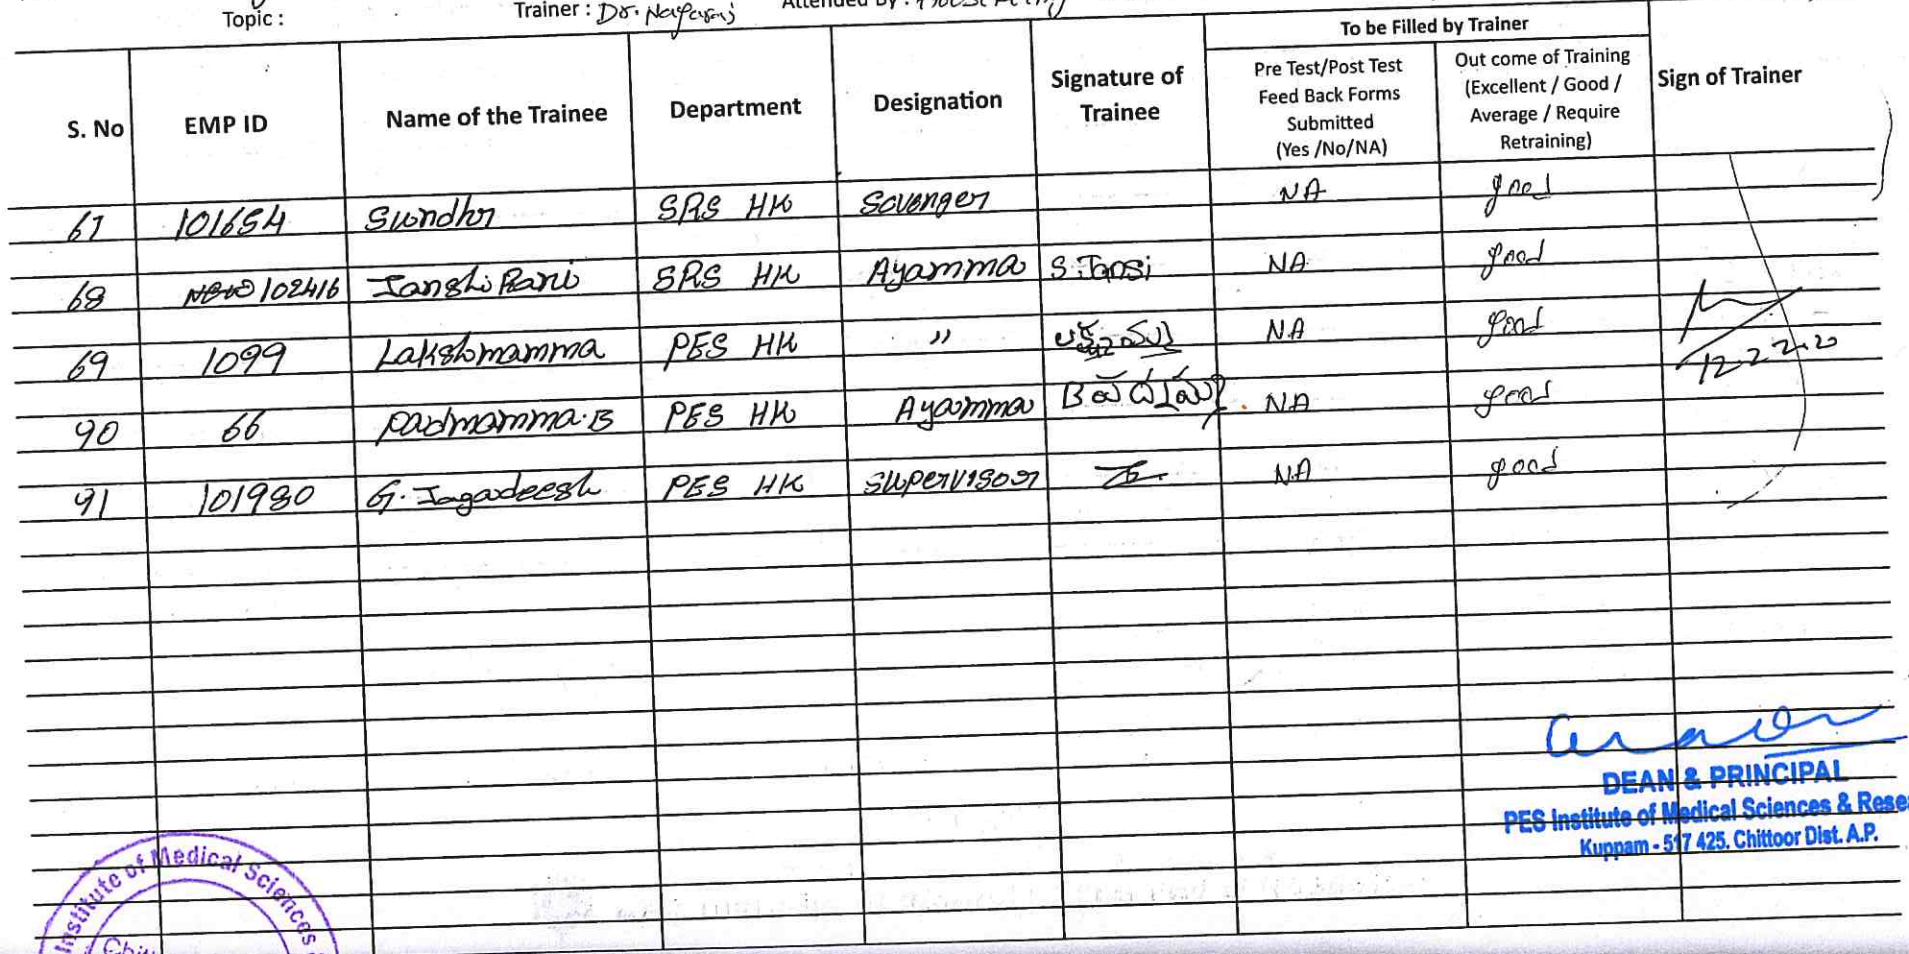 Topic : Trainer : Dr. Nagaraj Attended By :
To be Filled by Trainer
S. No EMP ID Name of the Trainee Department Designation Signature of Trainee Pre Test/Post Test Feed Back Forms Submitted (Yes /No/NA) Out come of Training (Excellent / Good / Average / Require Retraining) Sign of Trainer
67 101654 SRS HK Scvenger NA good
68 102416 Janshi Rani SRS HK Ayamma S. Jansi NA good
69 1099 Lakshmamma PES HK " NA good
12.2.20
90 66 Padmamma.B PES HK Ayamma NA good
91 101980 G. Jagadeesh PES HK Supervisor NA good
DEAN & PRINCIPAL
PES Institute of Medical Sciences & Rese
Kuppam - 517 425. Chittoor Dist. A.P.
Institute of Medical Sciences